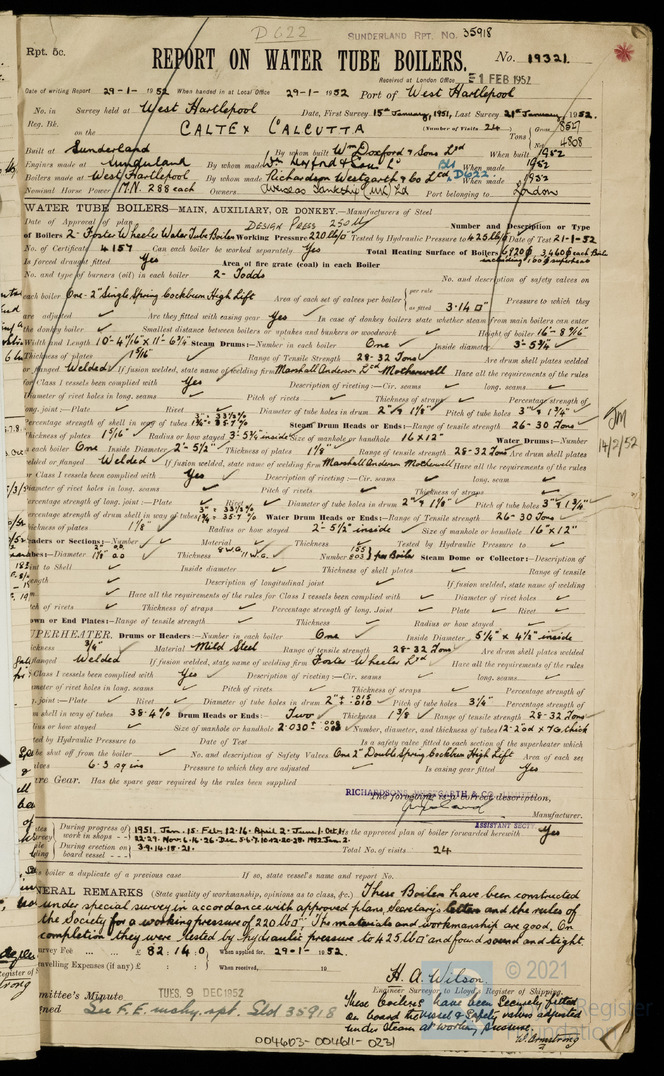 D622 SUNDERLAND RPT. No. 35918
Rpt. 5c.
REPORT ON WATER TUBE BOILERS. No. 19321.
Received at London Office 1 FEB 1952
Date of writing Report 29-1-1952 When handed in at Local Office 29-1-1952 Port of West Hartlepool
No. in Survey held at West Hartlepool Date, First Survey 15th January, 1951, Last Survey 21st January, 1952.
Reg. Bk. (Number of Visits 24)
on the CALTEX CALCUTTA Tons Gross 8567 Net 4808
Built at Sunderland By whom built Wm Doxford & Sons Ltd When built 1952
Engines made at Sunderland By whom made Wm Doxford & Sons Ld When made 1952
Boilers made at West Hartlepool By whom made Richardsons Westgarth & Co Ltd D622 When made 1952
Nominal Horse Power MN. 288 each Owners Overseas Tankship (UK) Ld Port belonging to London
WATER TUBE BOILERS—MAIN, AUXILIARY, OR DONKEY.—Manufacturers of Steel
Date of Approval of plan DESIGN PRESS 250 lb Number and Description or Type
of Boilers 2 - Foster Wheeler Water Tube Boilers Working Pressure 220 lb/□" Tested by Hydraulic Pressure to 425 lb/□" Date of Test 21-1-52
No. of Certificate 4157 Can each boiler be worked separately Yes Total Heating Surface of Boilers 6920□, 3460□ each Boiler
Is forced draught fitted Yes Area of fire grate (coal) in each Boiler including superheater
No. and type of burners (oil) in each boiler 2- Todds No. and description of safety valves on
each boiler One-2" Single Spring Cockburn High Lift Area of each set of valves per boiler per rule as fitted 3.14 □" Pressure to which they
are adjusted ✓ Are they fitted with easing gear Yes In case of donkey boilers state whether steam from main boilers can enter
the donkey boiler ✓ Smallest distance between boilers or uptakes and bunkers or woodwork ✓ Height of boiler 16'-8 9/16"
Width and Length 10'-4 7/16" x 11'-6 3/4" Steam Drums:—Number in each boiler One Inside diameter 3'-5 3/4"
Thickness of plates 1 5/16" Range of Tensile Strength 28-32 Tons Are drum shell plates welded
or flanged Welded If fusion welded, state name of welding firm Marshall Anderson Ltd Motherwell Have all the requirements of the rules
for Class I vessels been complied with Yes Description of riveting:—Cir. seams ✓ long. seams ✓
Diameter of rivet holes in long. seams ✓ Pitch of rivets ✓ Thickness of straps ✓ Percentage strength of
long. joint:—Plate ✓ Rivet ✓ Diameter of tube holes in drum 2" & 1 1/8" Pitch of tube holes 3" & 1 3/4"
Percentage strength of shell in way of tubes 3" = 33⅓% 1 3/4" = 35.7% Steam Drum Heads or Ends:—Range of tensile strength 26-30 Tons
Thickness of plates 1 5/16" Radius or how stayed 3'-5 3/4" inside Size of manhole or handhole 16 x 12" Water Drums:—Number
in each boiler One Inside Diameter 2'-5 1/2" Thickness of plates 1 1/8" Range of tensile strength 28-32 Tons Are drum shell plates
welded or flanged Welded If fusion welded, state name of welding firm Marshall Anderson Motherwell Have all the requirements of the rules
for Class I vessels been complied with Yes Description of riveting:—Cir. seams ✓ long. seam ✓
Diameter of rivet holes in long. seams ✓ Pitch of rivets ✓ Thickness of straps ✓
Percentage strength of long. joint:—Plate ✓ Rivet ✓ Diameter of tube holes in drum 2" & 1 1/8" Pitch of tube holes 3" & 1 3/4"
Percentage strength of drum shell in way of tubes 3" = 33⅓% 1 3/4" = 35.7% Water Drum Heads or Ends:—Range of Tensile strength 26-30 Tons
Thickness of plates 1 1/8" Radius or how stayed 2'-5 1/2" inside Size of manhole or handhole 16" x 12"
Headers or Sections:—Number ✓ Material ✓ Thickness ✓ Tested by Hydraulic Pressure to ✓
Tubes:—Diameter 2" 1 1/8" O.D. Thickness 8 W.G. 11 W.G. Number per Boiler Steam Dome or Collector:—Description of
Joint to Shell ✓ Inside diameter ✓ Thickness of shell plates ✓ Range of tensile
strength ✓ Description of longitudinal joint ✓ If fusion welded, state name of welding
✓ Have all the requirements of the rules for Class I vessels been complied with ✓ Diameter of rivet holes ✓
Pitch of rivets ✓ Thickness of straps ✓ Percentage strength of long. Joint ✓ Plate ✓ Rivet ✓
Crown or End Plates:—Range of tensile strength ✓ Thickness ✓ Radius or how stayed ✓
SUPERHEATER. Drums or Headers:—Number in each boiler One Inside Diameter 5 1/4" x 4 1/2" inside
Thickness 3/4" Material Mild Steel Range of tensile strength 28-32 Tons Are drum shell plates welded
or flanged Welded If fusion welded, state name of welding firm Foster Wheeler Ltd Have all the requirements of the rules
for Class I vessels been complied with Yes Description of riveting:—Cir. seams ✓ long. seams ✓
Diameter of rivet holes in long. seams ✓ Pitch of rivets ✓ Thickness of straps ✓ Percentage strength of
long. joint:—Plate ✓ Rivet ✓ Diameter of tube holes in drum 2" + .015 .010 Pitch of tube holes 3 1/4" Percentage strength of
drum shell in way of tubes 38.4% Drum Heads or Ends:— Two Thickness 1 3/8 Range of tensile strength 28-32 Tons
Radius or how stayed ✓ Size of manhole or handhole 2.030" Number, diameter, and thickness of tubes 12-2" od x 7 G. thick
Tested by Hydraulic Pressure to Date of Test Is a safety valve fitted to each section of the superheater which
can be shut off from the boiler ✓ No. and description of Safety Valves One 2" Double Spring Cockburn High Lift Area of each set
of valves 6.3 sq ins Pressure to which they are adjusted ✓ Is easing gear fitted Yes
Spare Gear. Has the spare gear required by the rules been supplied
RICHARDSONS, WESTGARTH & CO., LIMITED.
The foregoing is a correct description,
ASSISTANT SECRETARY Manufacturer.
During progress of work in shops Is the approved plan of boiler forwarded herewith Yes
During erection on board vessel 3.9.14.18.21. Total No. of visits 24
Is boiler a duplicate of a previous case If so, state vessel's name and report No.
GENERAL REMARKS (State quality of workmanship, opinions as to class, &c.) These Boilers have been constructed
under special survey in accordance with approved plans, Secretary's letter and the rules of
the Society for a working pressure of 220 lb □". The materials and workmanship are good. On
completion they were tested by hydraulic pressure to 425 lb □" and found sound and tight.
Survey Fee £ 82.14.0 When applied for, 29-1-1952.
Travelling Expenses (if any) £ : : When received, 19
H. A. Wilson.
Engineer Surveyor to Lloyd's Register of Shipping.
Committee's Minute TUES. 9 DEC 1952
See F.E. mchy. rpt. Sld 35918
These boilers have been securely fitted
on board the vessel & safety valves adjusted
under steam at working pressure.
W. Armstrong
JM
14/2/52
© 2021
004603-004611-0231